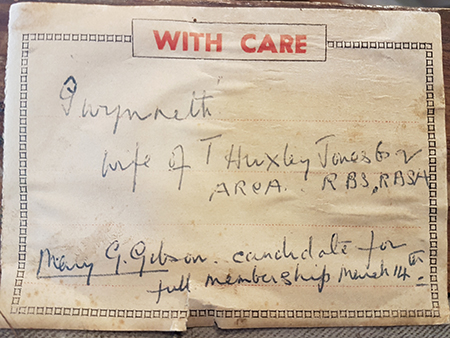 WITH CARE
"Gwynneth"
wife of T Huxley Jones Esq
ARCA. RBS, RBSA
Mary G. Gibson. candidate for
full membership March 14th.